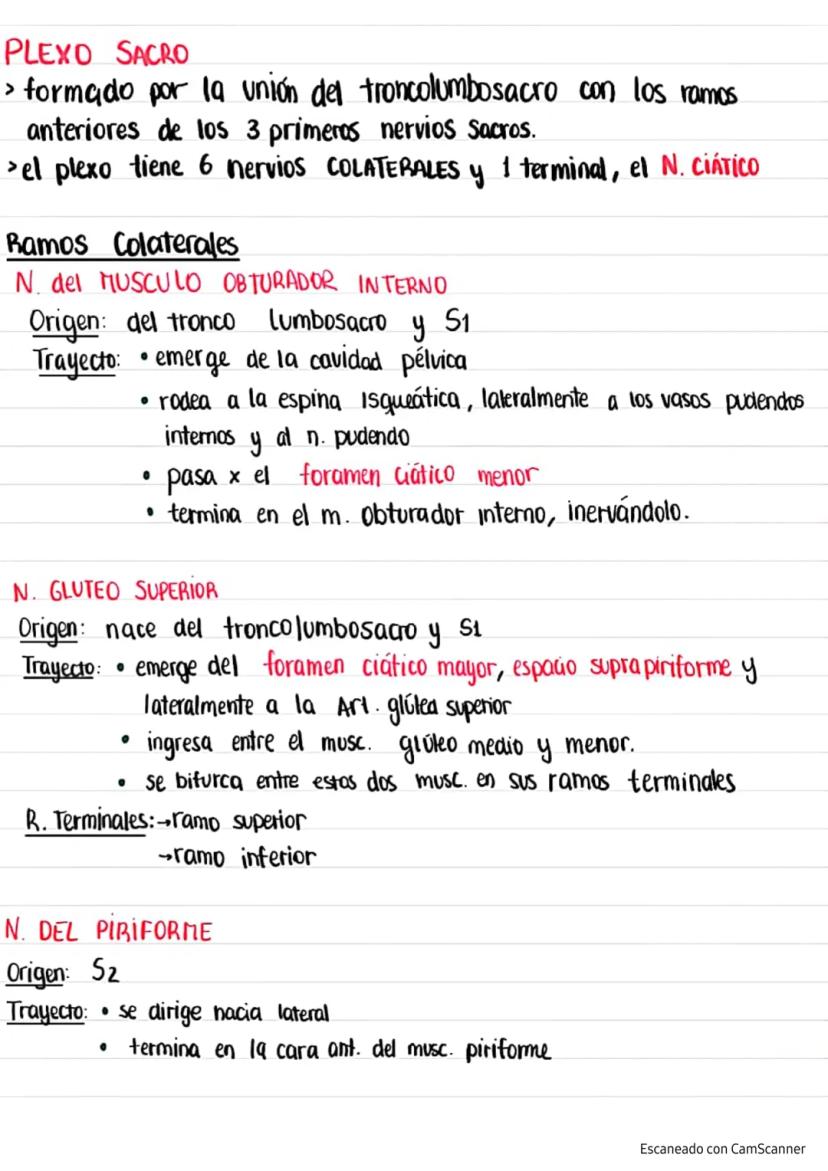 PLEXO SACRO
> formado por la unión del troncolumbosacro con los ramos
anteriores de los 3 primeros nervios sacros.
> el plexo tiene 6 nervios COLATERALES y 1 terminal, el N. CIÁTICO
Ramos Colaterales
N. del MUSCULO OBTURADOR INTERNO
Origen: del tronco lumbosacro y S1
Trayecto: • emerge de la cavidad pélvica
• rodea a la espina Isqueática, lateralmente a los vasos pudendos
internos y al n. pudendo
• pasa x el foramen ciático menor
• termina en el m. obturador interno, inervándolo.
N. GLUTEO SUPERIOR
Origen: nace del troncolumbosacro y S1
Trayecto: • emerge del foramen ciático mayor, espacio suprapiriforme y
lateralmente a la Art. glútea superior
• ingresa entre el musc. glúteo medio y menor.
• se bifurca entre estos dos musc. en sus ramos terminales
R. Terminales: → ramo superior
→ ramo inferior
N. DEL PIRIFORME
Origen: S2
Trayecto: • se dirige hacia lateral
• termina en la cara ant. del musc. piriforme
Escaneado con CamScanner